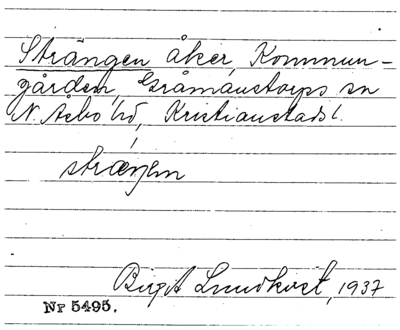 Strängen åker, Kommun-
gården, Gråmanstorps sn
N. Åsbo hd, Kristianstads l.
stræŋen
Birgit Lundkvist, 1937
Nr 5495.